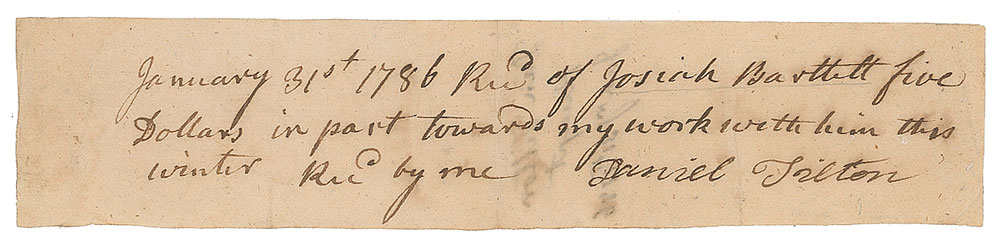 January 31st 1786 Recd of Josiah Bartlett five
Dollars in part towards my work with him this
winter Recd by me Daniel Tilton